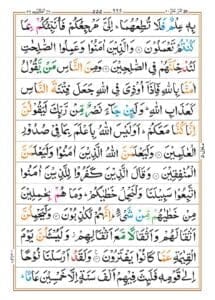 بِهٖ عِلْمٌ فَلَا تُطِعْهُمَا ؕ اِلَیَّ مَرْجِعُكُمْ فَاُنَبِّئُكُمْ بِمَا
كُنْتُمْ تَعْمَلُوْنَ ۝ وَالَّذِیْنَ اٰمَنُوْا وَعَمِلُوا الصّٰلِحٰتِ
لَنُدْخِلَنَّهُمْ فِی الصّٰلِحِیْنَ ۝ وَمِنَ النَّاسِ مَنْ یَّقُوْلُ
اٰمَنَّا بِاللّٰهِ فَاِذَاۤ اُوْذِیَ فِی اللّٰهِ جَعَلَ فِتْنَةَ النَّاسِ
كَعَذَابِ اللّٰهِ ؕ وَلَئِنْ جَآءَ نَصْرٌ مِّنْ رَّبِّكَ لَیَقُوْلُنَّ
اِنَّا كُنَّا مَعَكُمْ ؕ اَوَلَیْسَ اللّٰهُ بِاَعْلَمَ بِمَا فِیْ صُدُوْرِ
الْعٰلَمِیْنَ ۝ وَلَیَعْلَمَنَّ اللّٰهُ الَّذِیْنَ اٰمَنُوْا وَلَیَعْلَمَنَّ
الْمُنٰفِقِیْنَ ۝ وَقَالَ الَّذِیْنَ كَفَرُوْا لِلَّذِیْنَ اٰمَنُوا
اتَّبِعُوْا سَبِیْلَنَا وَلْنَحْمِلْ خَطٰیٰكُمْ ؕ وَمَا هُمْ بِحٰمِلِیْنَ
مِنْ خَطٰیٰهُمْ مِّنْ شَیْءٍ ؕ اِنَّهُمْ لَكٰذِبُوْنَ ۝ وَلَیَحْمِلُنَّ
اَثْقَالَهُمْ وَاَثْقَالًا مَّعَ اَثْقَالِهِمْ ؗ وَلَیُسْئَلُنَّ یَوْمَ
الْقِیٰمَةِ عَمَّا كَانُوْا یَفْتَرُوْنَ ۝ وَلَقَدْ اَرْسَلْنَا نُوْحًا
اِلٰی قَوْمِهٖ فَلَبِثَ فِیْهِمْ اَلْفَ سَنَةٍ اِلَّا خَمْسِیْنَ عَامًا ؕ